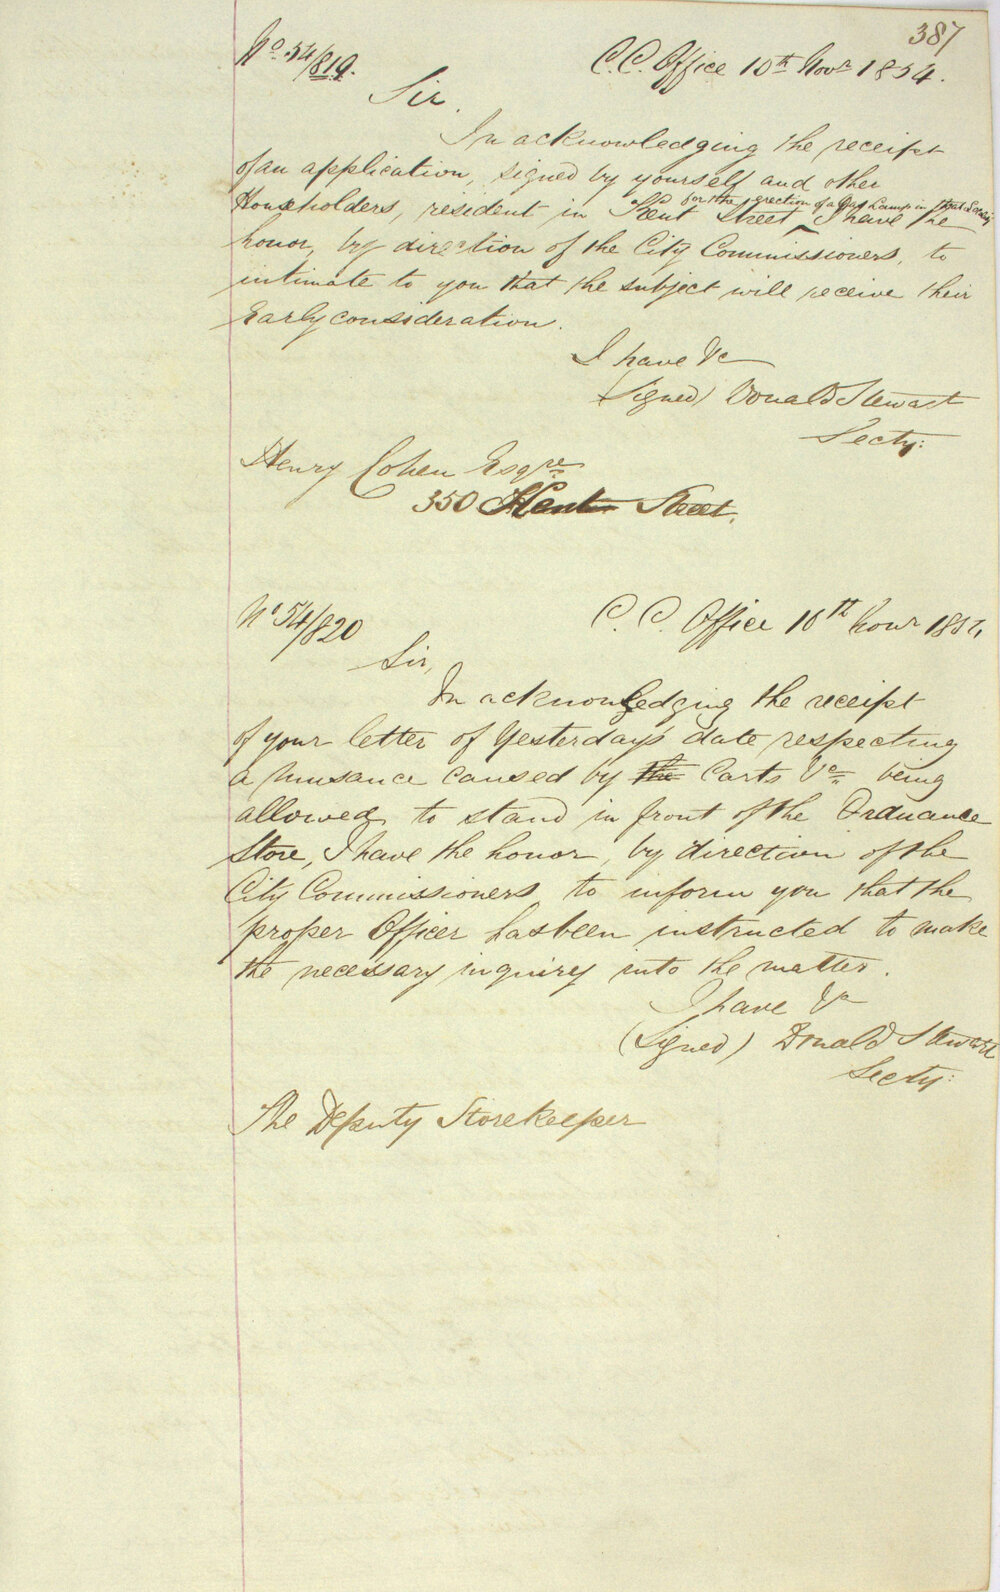 387
No. 54/819.
C.C. Office 10th Novr 1854.
Sir.
In acknowledging the receipt
of an application, signed by yourself and other
for the erection of a Gas Lamp in that
Householders, resident in Kent Street ^ I have the
honor, by direction of the City Commissioners, to
intimate to you that the subject will receive their
Early consideration.
I have &c
(Signed) Donald Stewart
Secty:
Henry Cohen Esqre
350 Kent Street.
No 54/820
C. C. Office 10th Novr 1854
Sir,
In acknowledging the receipt
of your letter of Yesterday's date respecting
a Nuisance caused by the Carts &c being
allowed to stand in front of the Ordnance
Store, I have the honor, by direction of the
City Commissioners to inform you that the
proper Officer has been instructed to make
the necessary inquiry into the matter.
I have &c
(Signed) Donald Stewart
Secty:
The Deputy Storekeeper